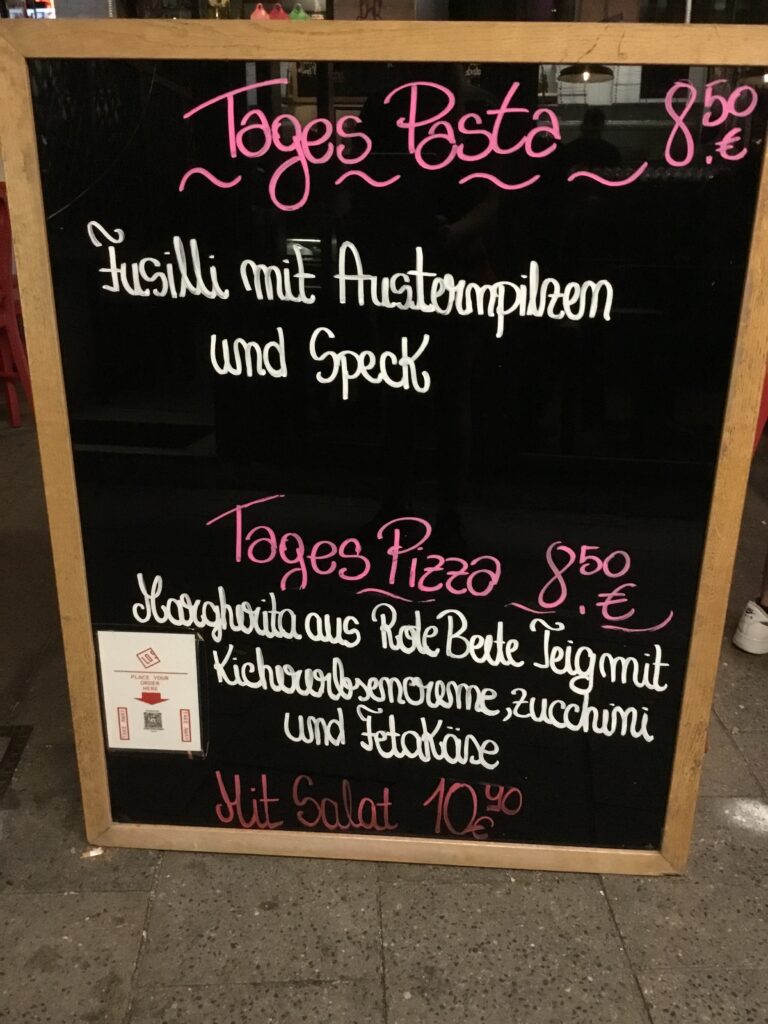 Tages Pasta 8.50 €
Fusilli mit Austernpilzen
und Speck
Tages Pizza 8.50 €
Margherita aus Rote Beete Teig mit
Kichererbsencreme, Zucchini
und Fetakäse
PLACE YOUR
ORDER
HERE
Mit Salat 10.90 €